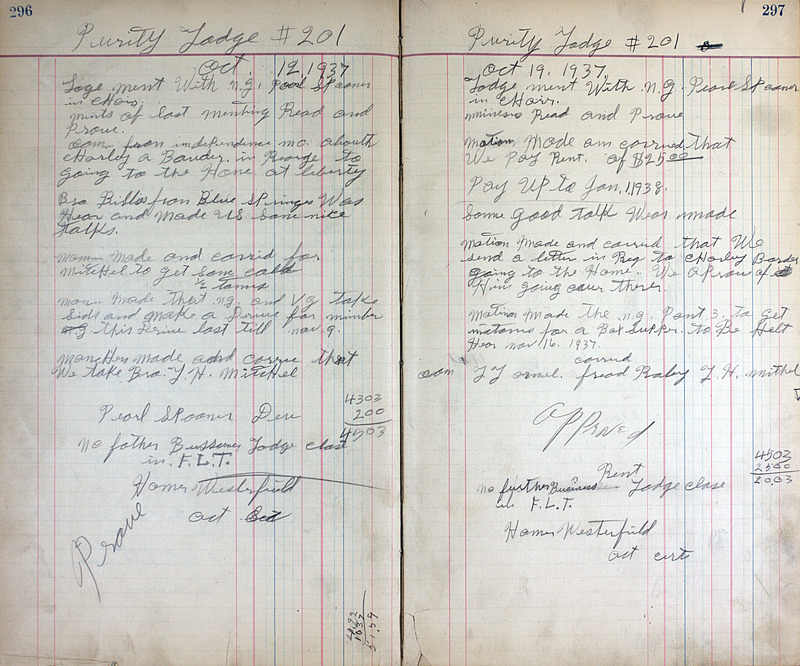 296
Purity Lodge # 201
Oct. 12, 1937
Loge ment With n.g. Pearl Spooner
in cHair.
minits of last menting Read and
Prove.
com. from independence mo. abouth
cHarley a Bander. in Rearge to
going to the Home at liberty
Bro Bills from Blue Springs Was
Hear and Made US Som nice
Talks.
made and carrid for
MitcHel to get som cold
1/2 tonns
made that n.g. and V g take
Sids and make a Drive for mimber
this Drive last till nov. 9.
made and corrie that
We take Bro. L. H. MitcHel
4303
Pearl Spooner Deu 200
4503
No father Bussness Lodge close
in. F.L.T.
Homer Westerfield
act
Prove
4.22
1037
5159
297
Purity Lodge # 201
Oct 19, 1937,
Lodge ment With n.g. Pearl Spooner
in cHair.
minines Read and Prove
Mation Made am corried that
We Pay Rent. of $25 00
Pay Up to Jan. 1, 1938.
Some good talk Wear made
Mation Made and corried that We
send a letter in Reg to cHarley Bander
going to the Home. We aProve of
Him going our ther.
Mation Made the n.g. Pont 3. to get
for a Box SuPPer. to Be Helt
Hear nov 16. 1937.
corried
com L. H. mithel
APProved
4503
Rent 2500
2003
no further Business Lodge close
in F.L.T.
Homer Westerfield
act